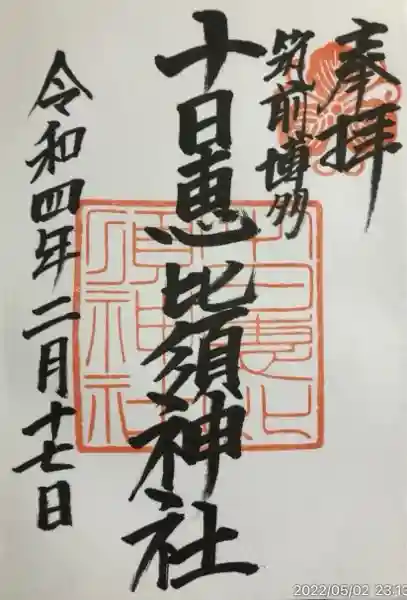 奉拝
筑前博多
十日恵比須神社
令和四年二月十七日
十日恵比
須神社
2022/05/02 23:13